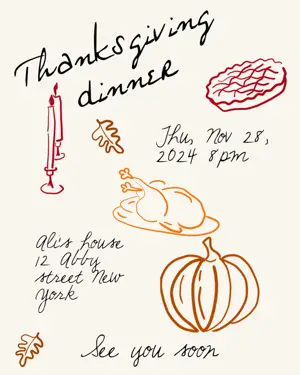 Thanksgiving
dinner
Thu, Nov 28,
2024 8pm
Ali's house
12 Abby
street New
York
See you soon